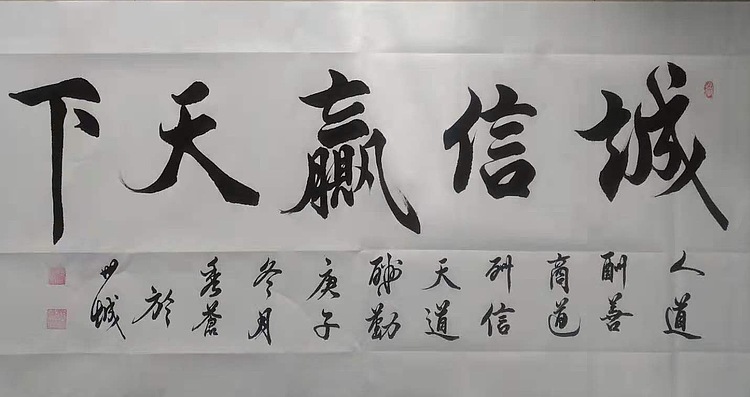 誠信贏天下
人道
酬善
商道
酬信
天道
酬勤
庚子
冬月
蒼
於
城